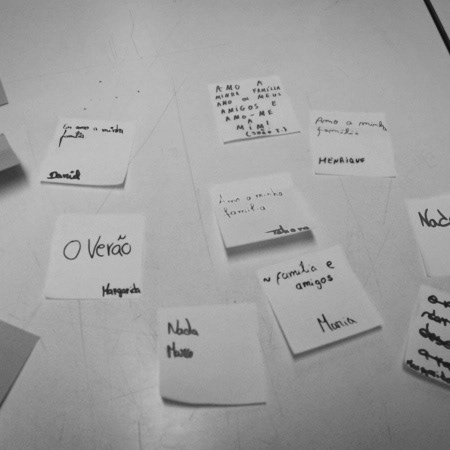 AMO A
MINHA FAMÍLIA
AMO OS MEUS
AMIGOS E
AMO-ME
A
MIM!
(JOÃO T.)
Eu amo a minha
família
David
Amo a minha
família
HENRIQUE
Amo a minha
família
O Verão
Margarida
~ família e
amigos
Maria
Nada
Nada